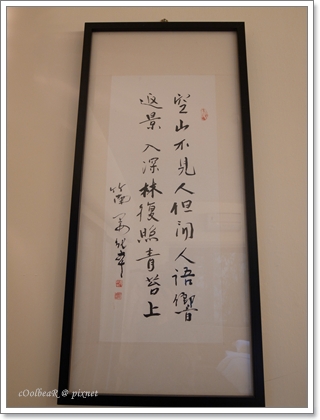 空山不見人但聞人語響
返景入深林復照青苔上
cOolbeaR @ pixnet